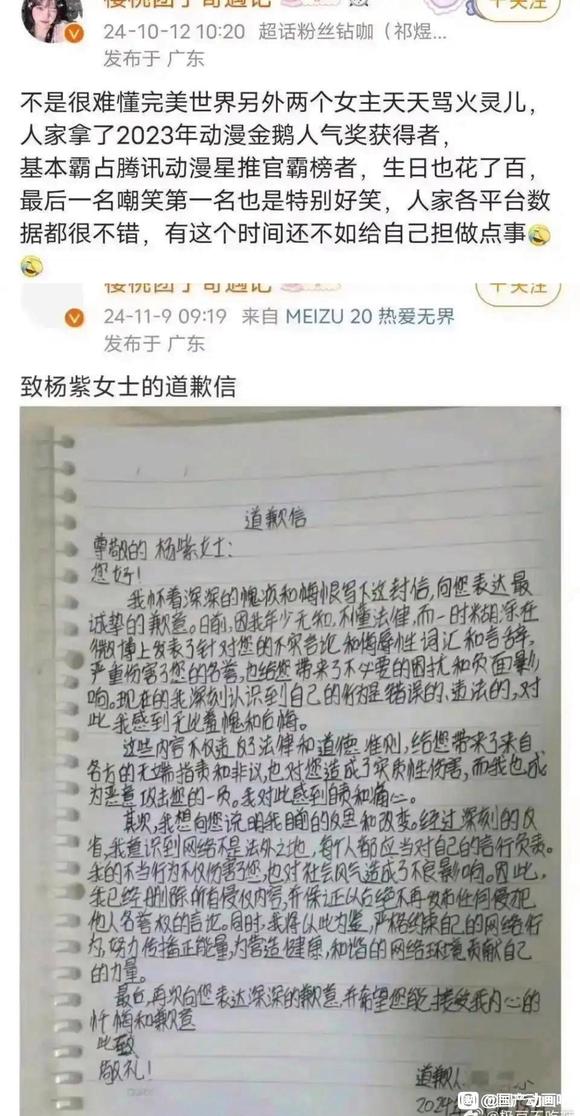 樱桃团子奇遇记
+关注
24-10-12 10:20 超话粉丝钻咖（祁煜...
发布于 广东
不是很难懂完美世界另外两个女主天天骂火灵儿，
人家拿了2023年动漫金鹅人气奖获得者，
基本霸占腾讯动漫星推官霸榜者，生日也花了百，
最后一名嘲笑第一名也是特别好笑，人家各平台数
据都很不错，有这个时间还不如给自己担做点事🤣
🤣
樱桃团子奇遇记
+关注
24-11-9 09:19 来自 MEIZU 20 热爱无界
发布于 广东
致杨紫女士的道歉信
道歉信
尊敬的杨紫女士：
您好！
我怀着深深的愧疚和悔恨写下这封信，向您表达最
诚挚的歉意。日前，因我年少无知，不懂法律，而一时糊涂在
微博上发表了针对您的不实言论和侮辱性词汇和言辞，
严重伤害了您的名誉，也给您带来了不必要的困扰和负面影
响。现在的我深刻认识到自己的行为是错误的、违法的，对
此我感到无比羞愧和后悔。
这些内容不仅违反法律和道德准则，给您带来了来自
各方的无端指责和非议，也对您造成了实质性伤害，而我也成
为恶意攻击您的一员。我对此感到自责和痛心。
其次，我想向您说明我目前的反思和改变。经过深刻的反
省，我意识到网络不是法外之地，每个人都应当对自己的言行负责。
我的不当行为不仅伤害您，也对社会风气造成了不良影响。因此，
我已经删除所有侵权内容，并保证从今绝不再发布任何侵犯
他人名誉权的言论。同时，我将以此为鉴，严格约束自己的网络行
为，努力传播正能量，为营造健康，和谐的网络环境贡献自己
的力量。
最后，再次向您表达深深的歉意，并希望您能接受我内心的
忏悔和歉意
此致
敬礼！
道歉人
2024
@国产动画